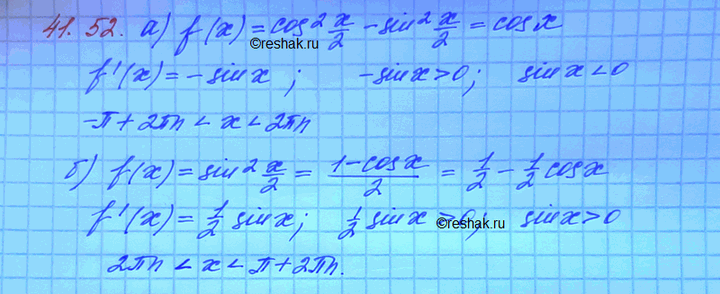 41. 52. а) f(x) = cos² x/2 - sin² x/2 = cos x
©reshak.ru
f'(x) = -sin x ; -sin x > 0 ; sin x < 0
-π + 2πn < x < 2πn
б) f(x) = sin² x/2 = (1-cos x)/2 = 1/2 - 1/2 cos x
f'(x) = 1/2 sin x; 1/2 sin x > 0; sin x > 0
©reshak.ru
2πn < x < π + 2πn.